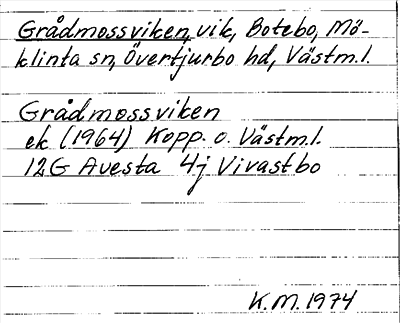 Grådmossviken, vik, Botebo, Mö-
klinta sn, Övertjurbo hd, Västm.l.
Grådmossviken
ek (1964) Kopp. o. Västm.l.
12G Avesta 4j Vivastbo
K.M. 1974